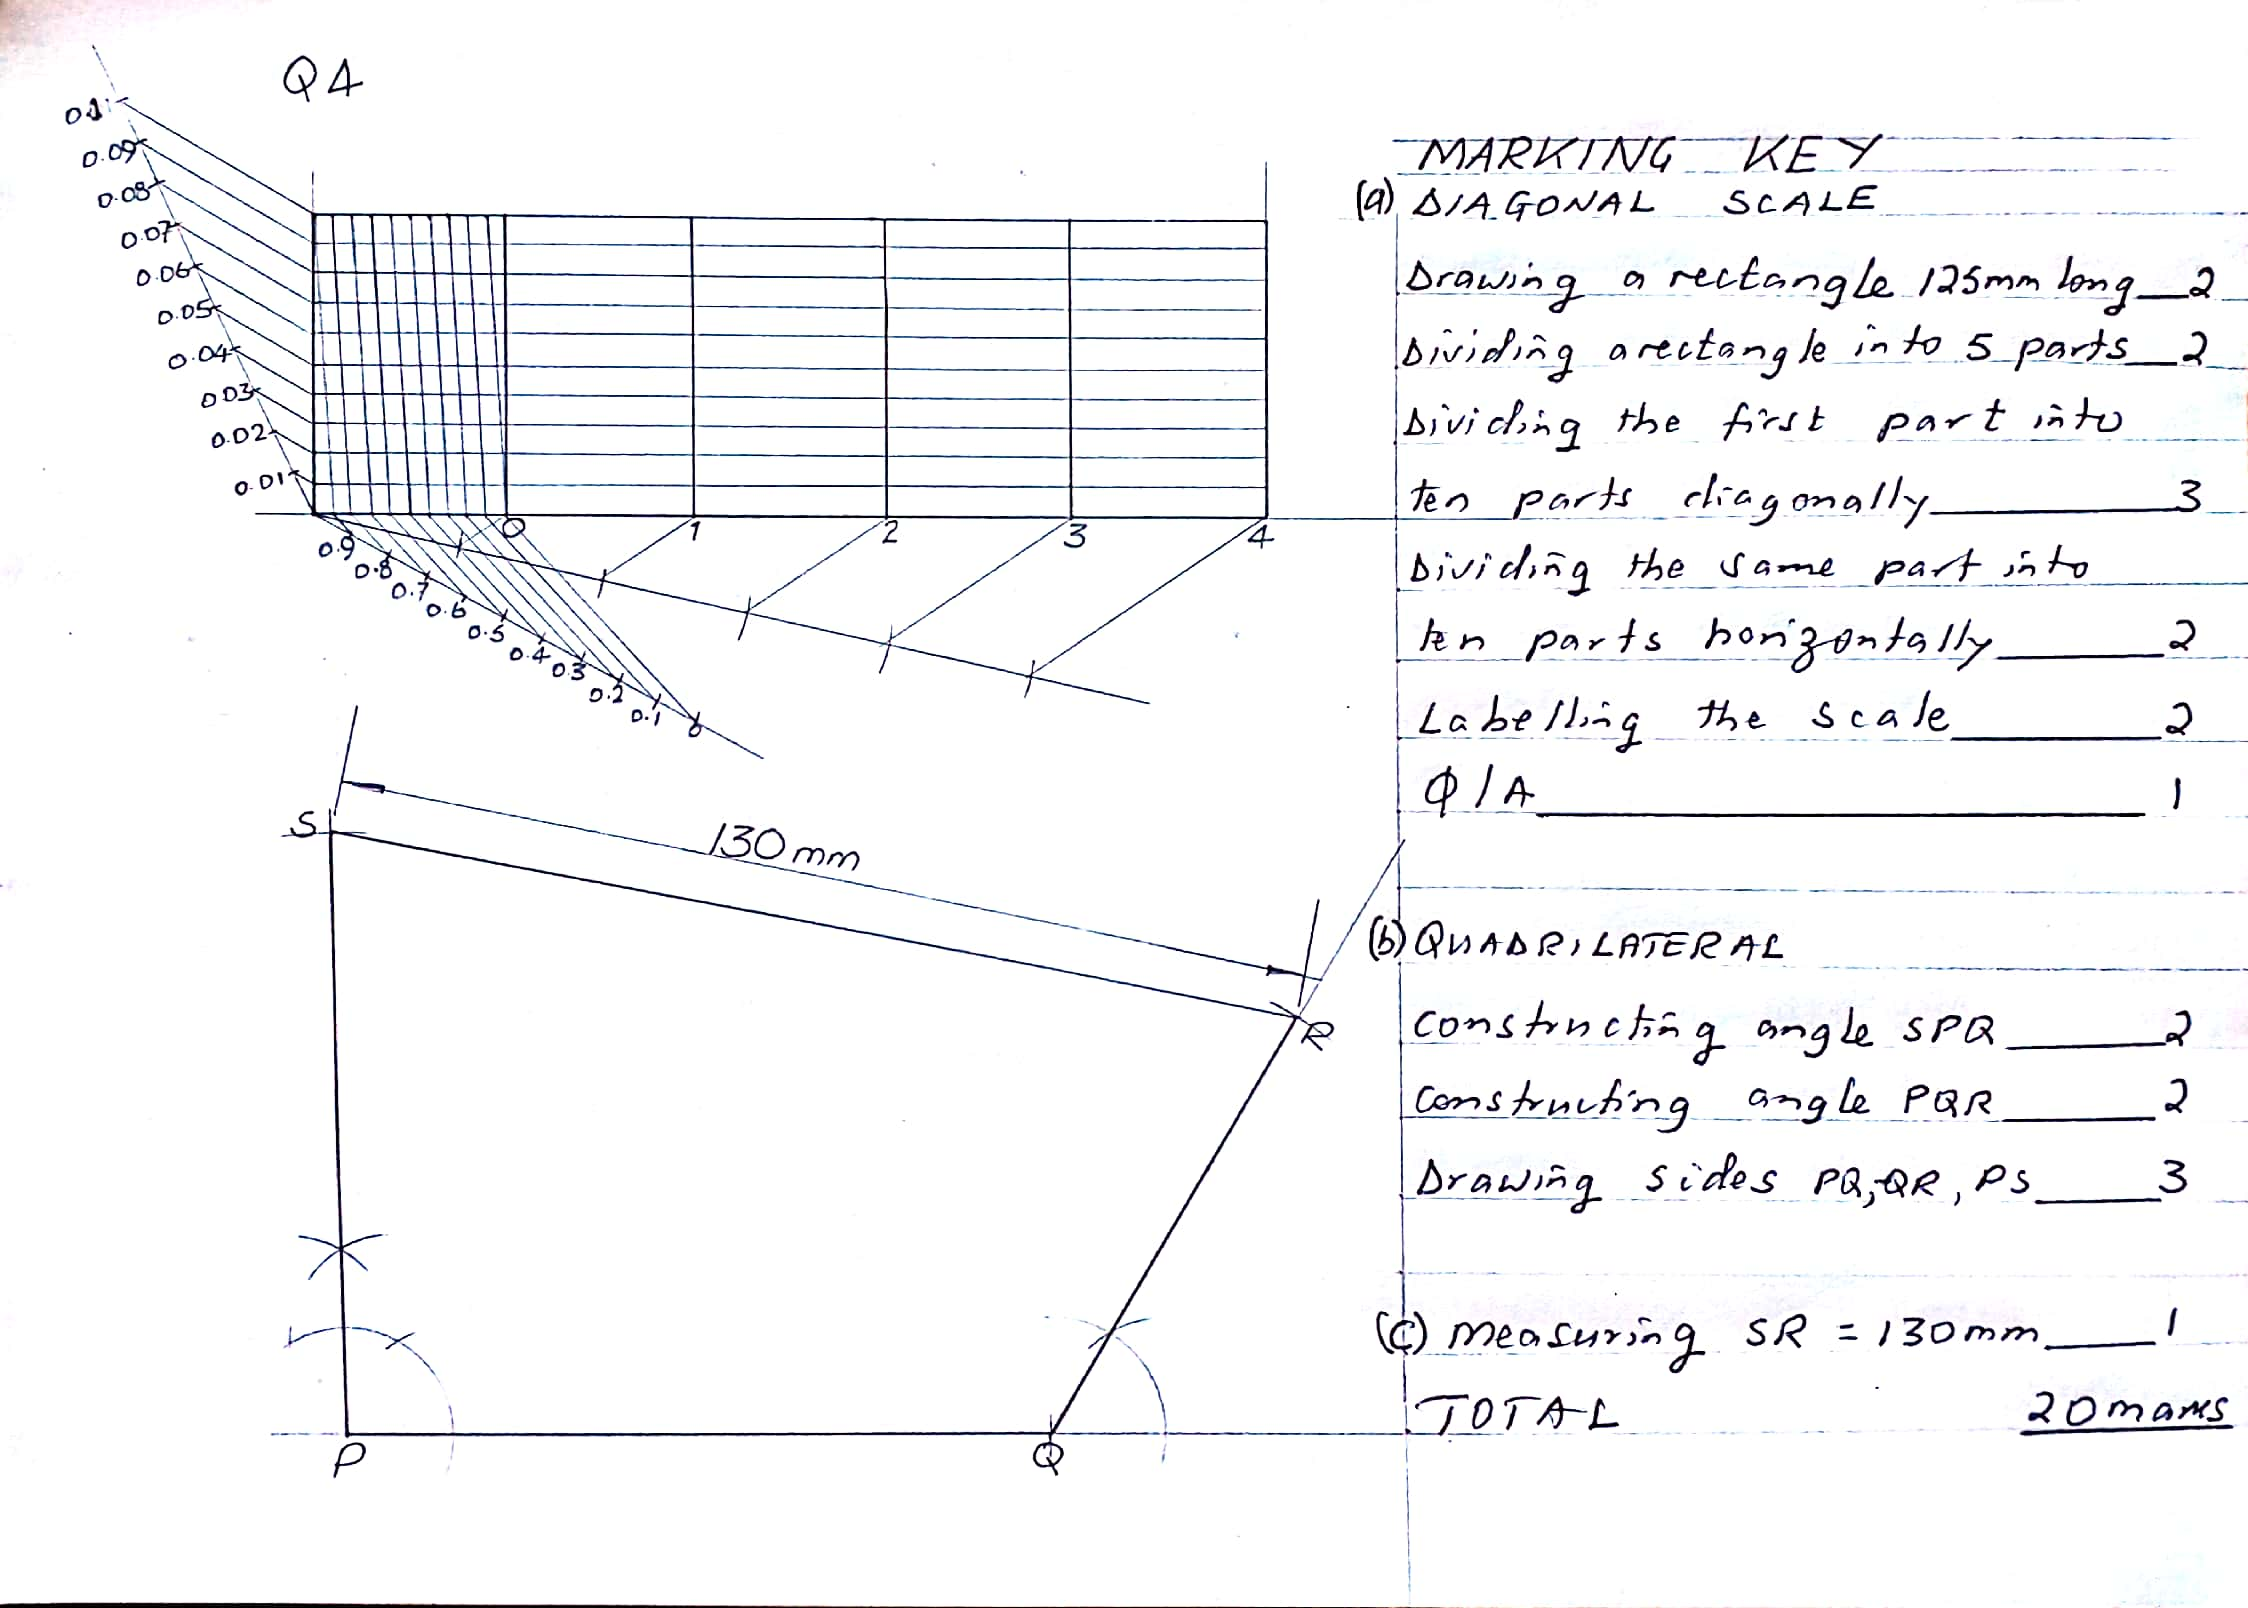 Q4
0.1
0.09
0.08
0.07
0.06
0.05
0.04
0.03
0.02
0.01
0 1 2 3 4
0.9
0.8
0.7
0.6
0.5
0.4
0.3
0.2
0.1
0
S
130mm
R
P
Q
MARKING KEY
(a) DIAGONAL SCALE
Drawing a rectangle 125mm long 2
Dividing a rectangle into 5 parts 2
Dividing the first part into
ten parts diagonally 3
Dividing the same part into
ten parts horizontally 2
Labelling the scale 2
Q/A 1
(b) QUADRILATERAL
Constructing angle SPQ 2
Constructing angle PQR 2
Drawing sides PQ, QR, PS 3
(c) measuring SR = 130mm 1
TOTAL 20 marks